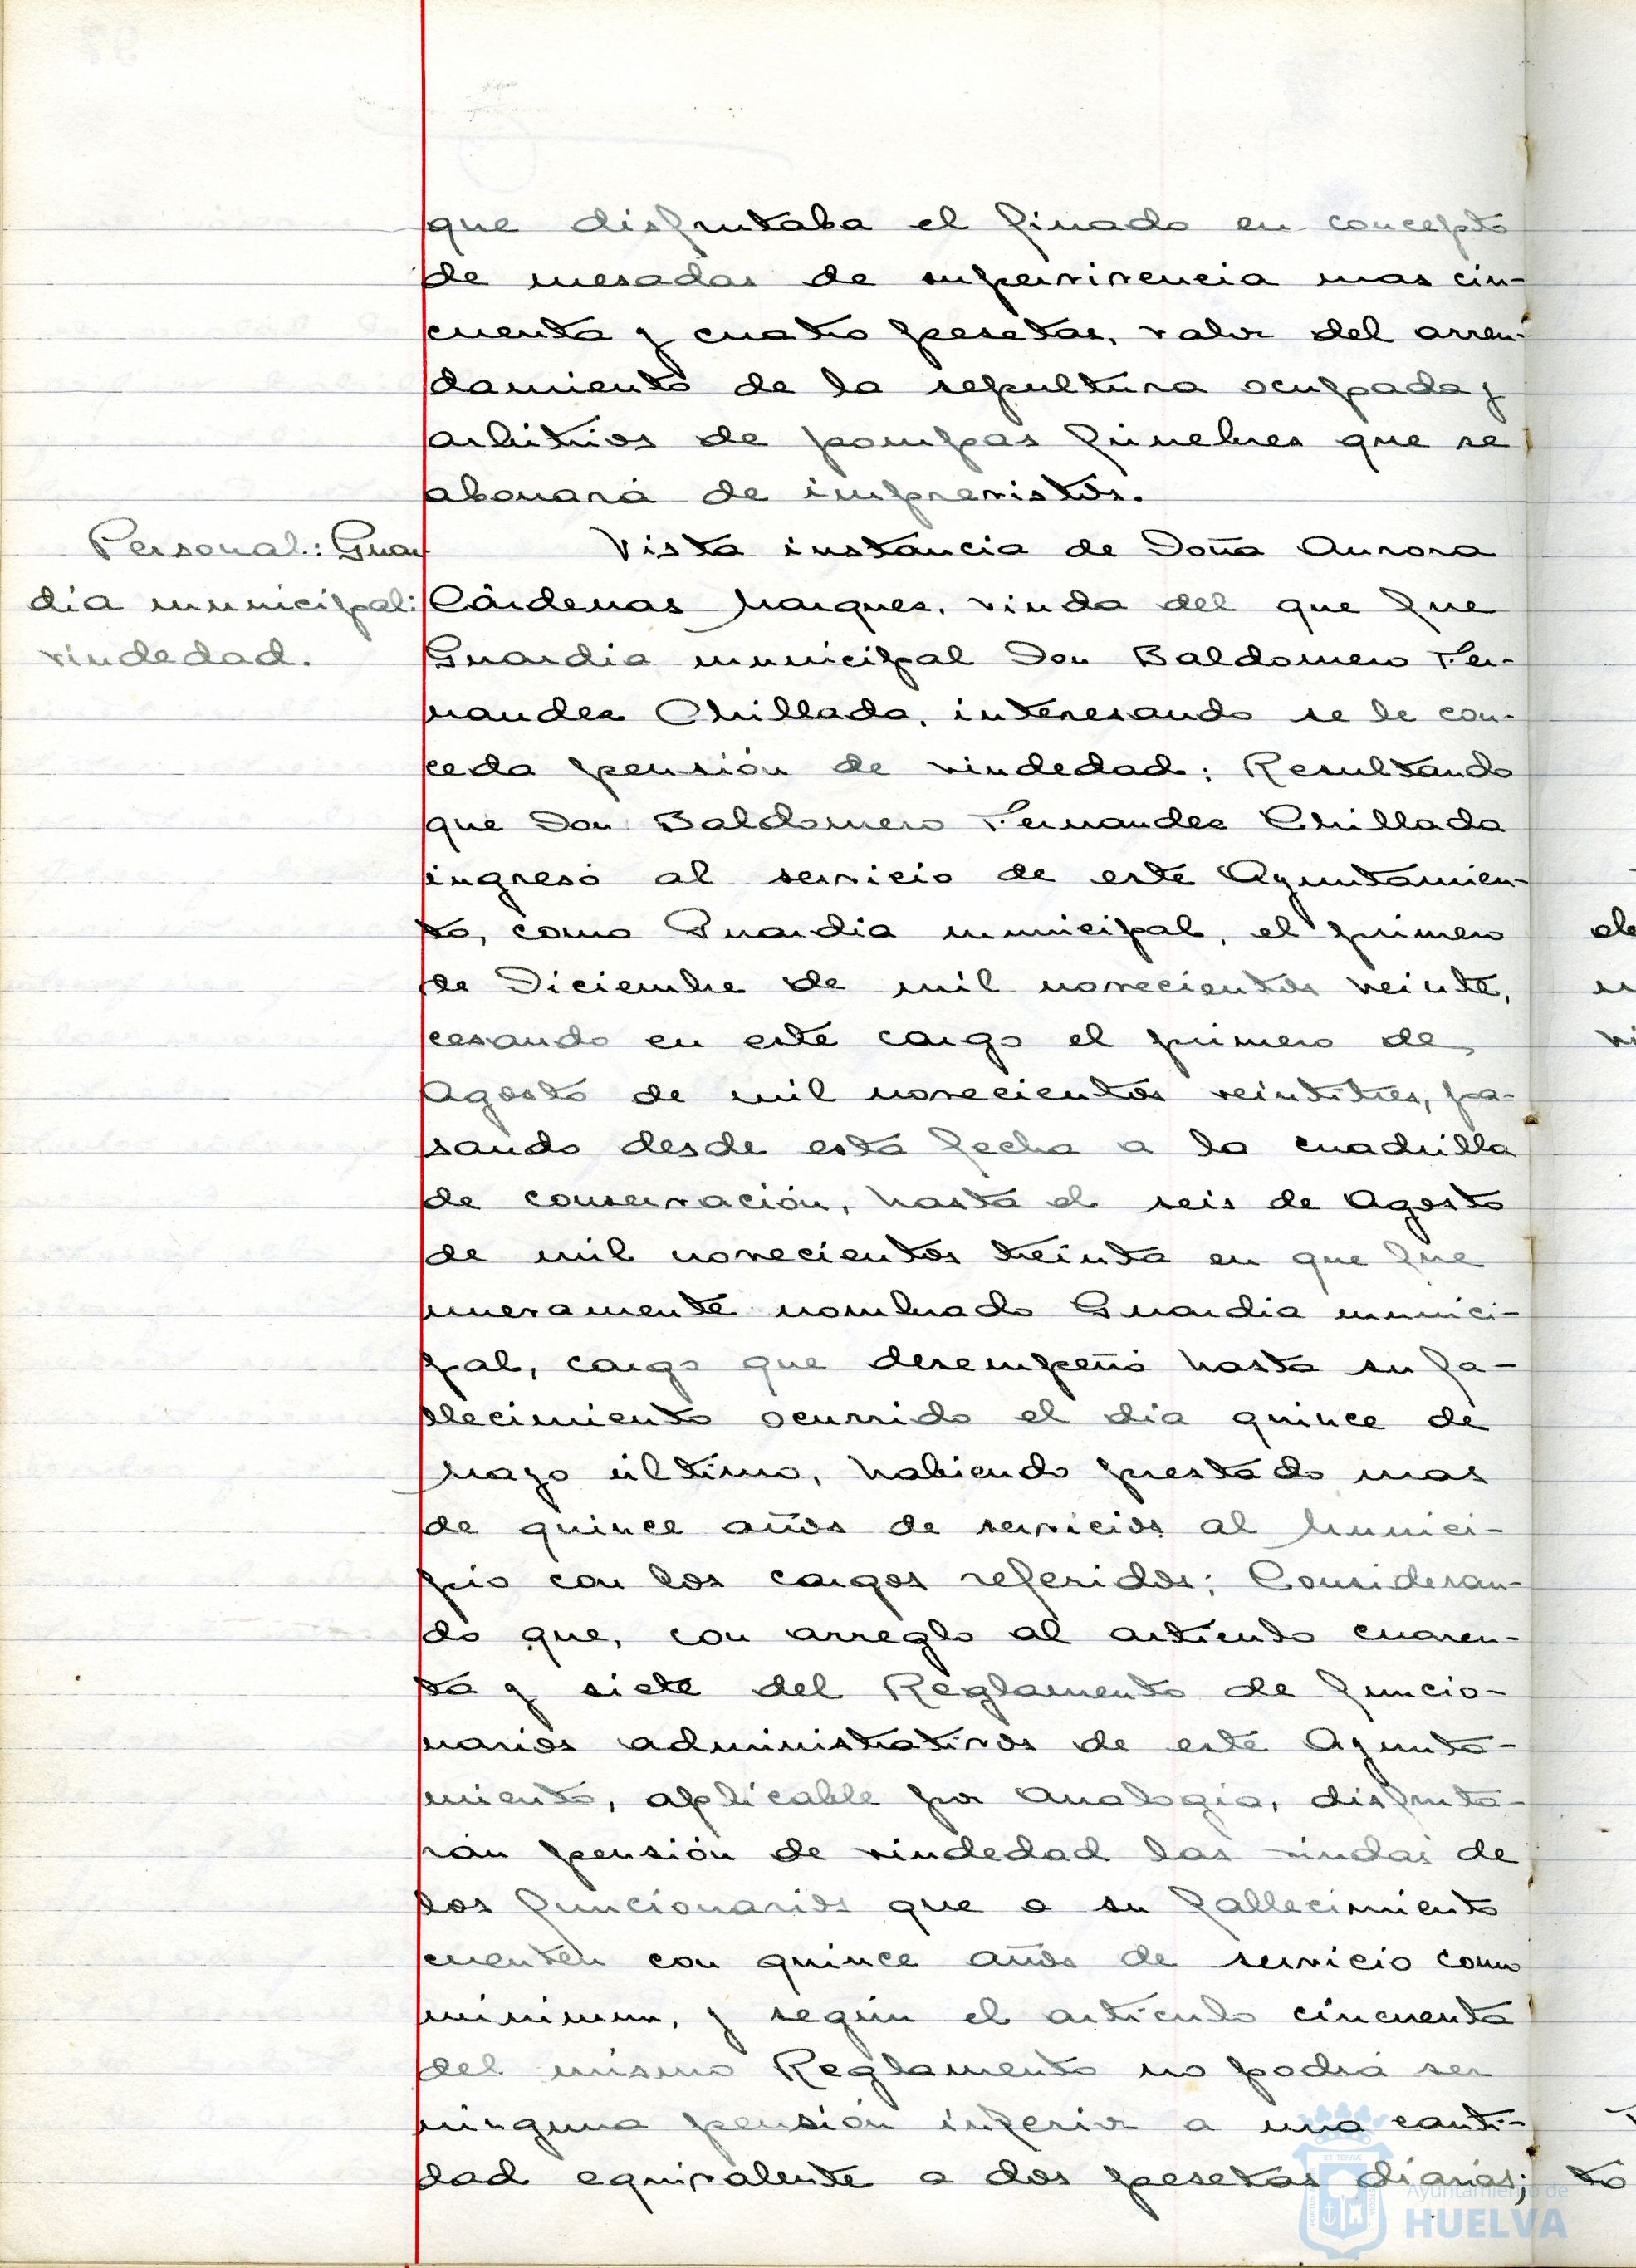 que disfrutaba el finado en concepto
de mesadas de supervivencia mas cin-
cuenta y cuatro pesetas, valor del arren-
damiento de la sepultura ocupada y
arbitrios de pompas fúnebres que se
abonará de imprevistos.
Personal: Guar
dia municipal:
viudedad.
Vista instancia de Doña Aurora
Cárdenas Marques, viuda del que fue
Guardia municipal Don Baldomero Fer-
nandez Chillada, interesando se le con-
ceda pensión de viudedad; Resultando
que Don Baldomero Fernandez Chillada
ingresó al servicio de este Ayuntamien-
to, como Guardia municipal, el primero
de Diciembre de mil novecientos veinte,
cesando en este cargo el primero de
Agosto de mil novecientos veintitres, pa-
sando desde esta fecha a la cuadrilla
de conservación, hasta el seis de Agosto
de mil novecientos treinta en que fue
nuevamente nombrado Guardia munici-
pal, cargo que desempeñó hasta su fa-
llecimiento ocurrido el día quince de
Mayo último, habiendo prestado mas
de quince años de servicios al Munici-
pio con los cargos referidos; Consideran-
do que, con arreglo al artículo cuaren-
ta y siete del Reglamento de funcio-
narios administrativos de este Ayunta-
miento, aplicable por analogía, disfruta-
rán pensión de viudedad las viudas de
los funcionarios que a su fallecimiento
cuenten con quince años de servicio como
minimum, y según el artículo cincuenta
del mismo Reglamento no podrá ser
ninguna pensión inferior a una canti-
dad equivalente a dos pesetas diarias;
to
Ayuntamiento de
HUELVA